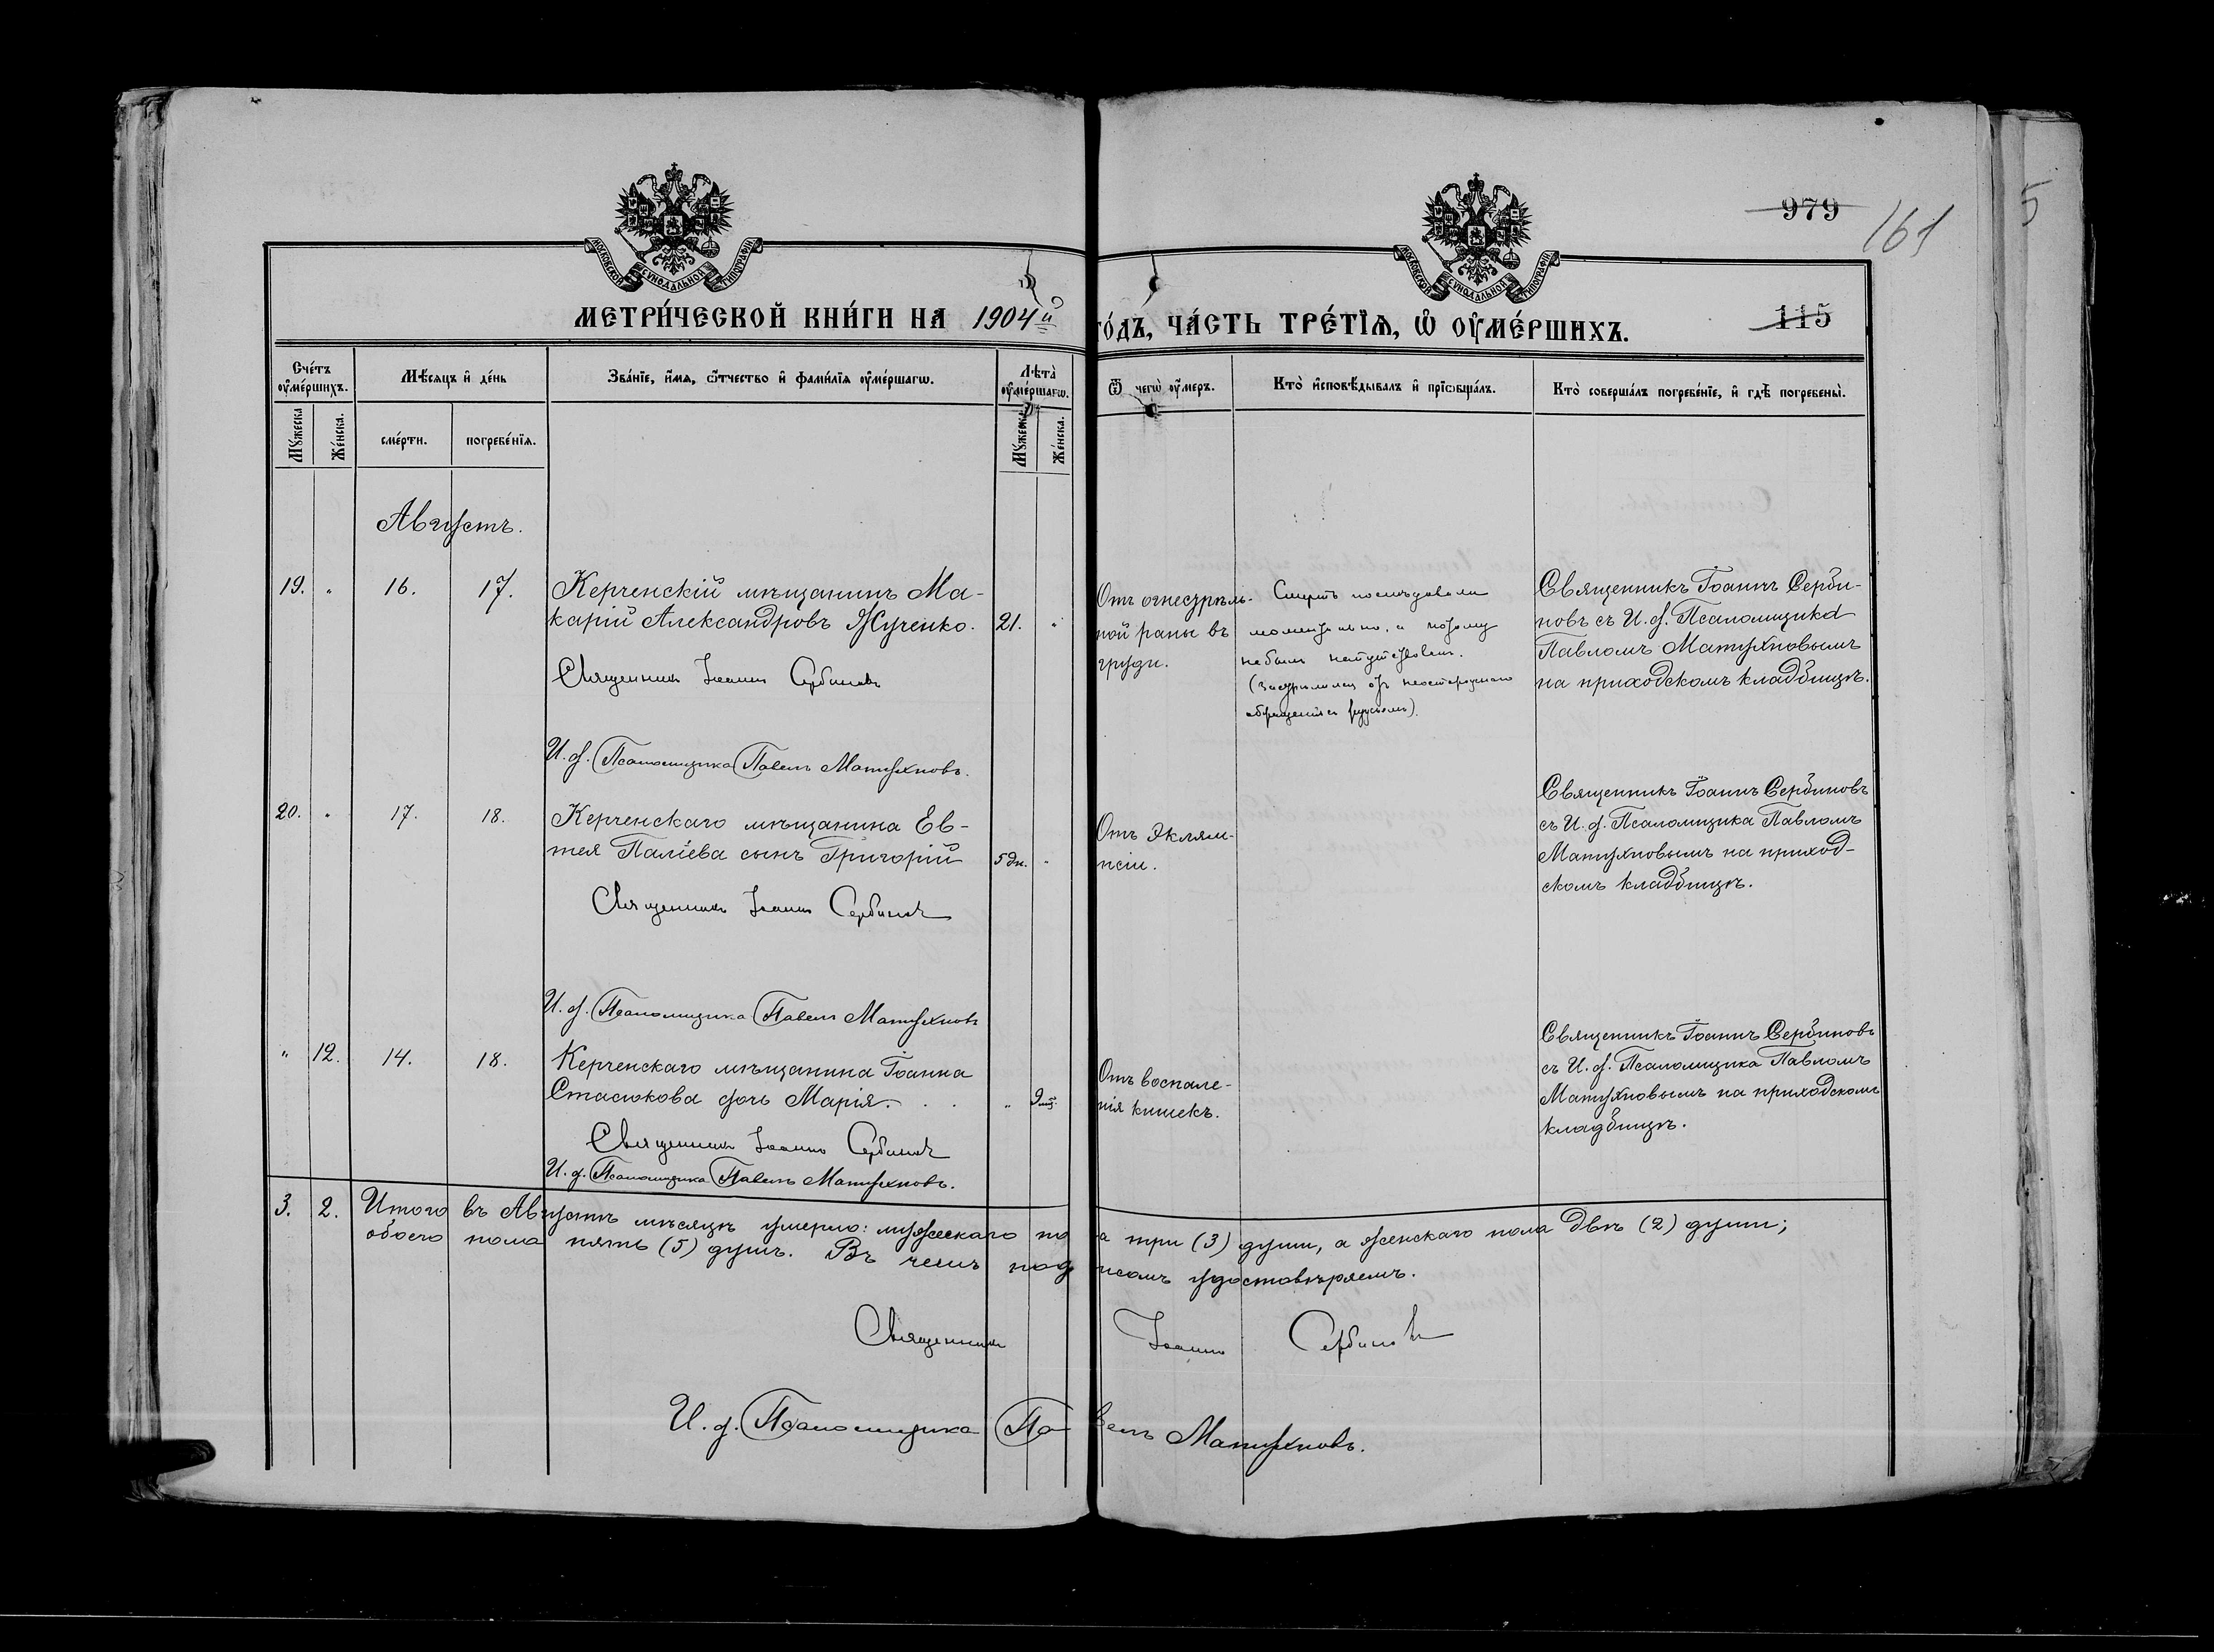 979
161
5
МОСКОВСКОЙ СѴНОДАЛЬНОЙ ТИПОГРАФІИ
МОСКОВСКОЙ СѴНОДАЛЬНОЙ ТИПОГРАФІИ
МЕТРИ́ЧЕСКОЙ КНИ́ГИ НА 1904й
го́дъ, ЧА́СТЬ ТРЕ́ТЇѦ, Ѡ҆ ОУ҆МЕ́РШИХЪ.
115
Сче́тъ оу҆ме́ршихъ.
Мѣсяцъ и҆ де́нь
Зва́нїе, и҆́мя, ѻ҆́тчество и҆ фами́лїя оу҆ме́ршагѡ.
Лѣта̀ оу҆ме́ршагѡ.
Ѿ чегѡ̀ оу҆́меръ.
Кто̀ и҆сповѣ́дывалъ и҆ прїѡбща́лъ.
Кто̀ соверша́лъ погребе́нїе, и҆ гдѣ̀ погребены̀.
Му́жеска
Же́нска.
сме́рти.
погребе́нїя.
Му́жеска
Же́нска.
Августъ.
19. " 16. 17.
Керченскій мѣщанинъ Ма-
карій Александровъ Жученко. 21. "
Священникъ Іоаннъ Сербиновъ
И. д. Псаломщика Павелъ Матухновъ.
Отъ огнестрѣль-
ной раны въ
груди.
Смерть послѣдовала
моментально, и потому
не былъ напутствованъ.
(Застрѣлился отъ неосторожнаго
обращенія съ ружьемъ).
Священникъ Іоаннъ Серби-
новъ съ И. д. Псаломщика
Павломъ Матухновымъ
на приходскомъ кладбищѣ.
20. " 17. 18.
Керченскаго мѣщанина Ев-
тея Паліева сынъ Григорій 5 дн. "
Священникъ Іоаннъ Сербиновъ
И. д. Псаломщика Павелъ Матухновъ
Отъ Эклям-
псіи.
Священникъ Іоаннъ Сербиновъ
съ И. д. Псаломщика Павломъ
Матухновымъ на приход-
скомъ кладбищѣ.
" 12. 14. 18.
Керченскаго мѣщанина Іоанна
Стасюкова дочь Марія. . . " 9 мѣ.
Священникъ Іоаннъ Сербиновъ
И. д. Псаломщика Павелъ Матухновъ.
Отъ воспале-
нія кишекъ.
Священникъ Іоаннъ Сербиновъ
съ И. д. Псаломщика Павломъ
Матухновымъ на приходскомъ
кладбищѣ.
3. 2. Итого въ Августѣ мѣсяцѣ умерло: мужескаго по а три (3) души, а женскаго пола двѣ (2) души;
обоего пола пять (5) душъ. Въ чемъ под писомъ удостовѣряемъ.
Священникъ Іоаннъ Сербиновъ
И. д. Псаломщика Павелъ Матухновъ.